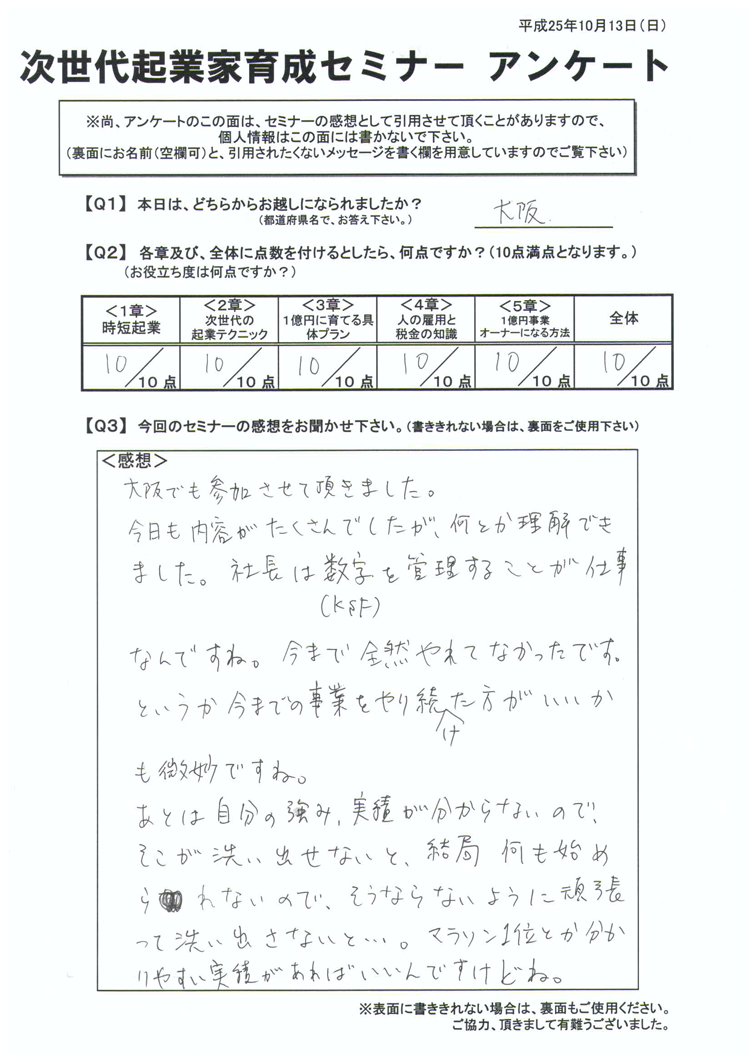 平成25年10月13日(日)
次世代起業家育成セミナー アンケート
※尚、アンケートのこの面は、セミナーの感想として引用させて頂くことがありますので、
個人情報はこの面には書かないで下さい。
(裏面にお名前(空欄可)と、引用されたくないメッセージを書く欄を用意していますのでご覧下さい)
【Q1】 本日は、どちらからお越しになられましたか? 大阪
(都道府県名で、お答え下さい。)
【Q2】 各章及び、全体に点数を付けるとしたら、何点ですか?(10点満点となります。)
(お役立ち度は何点ですか?)
<1章> 時短起業
<2章> 次世代の起業テクニック
<3章> 1億円に育てる具体プラン
<4章> 人の雇用と税金の知識
<5章> 1億円事業オーナーになる方法
全体
10/10点 10/10点 10/10点 10/10点 10/10点 10/10点
【Q3】 今回のセミナーの感想をお聞かせ下さい。(書ききれない場合は、裏面をご使用下さい)
<感想>
大阪でも参加させて頂きました。
今日も内容がたくさんでしたが、何とか理解でき
ました。社長は数字を管理することが仕事
(KSF)
なんですね。今まで全然やれてなかったです。
というか今までの事業をやり続けた方がいいか
も微妙ですね。
あとは自分の強み、実績が分からないので、
そこが洗い出せないと、結局何も始め
られないので、そうならないように頑張
って洗い出さないと…。マラソン1位とか分か
りやすい実績があればいいんですけどね。
※表面に書ききれない場合は、裏面もご使用ください。
ご協力、頂きまして有難うございました。